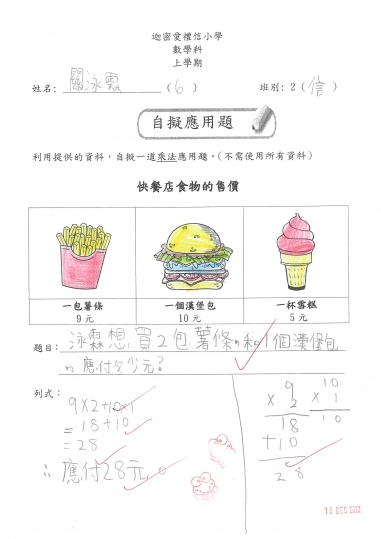 迦密愛禮信小學
數學科
上學期
姓名：關泳霖（6） 班別：2（信）
自擬應用題
利用提供的資料，自擬一道乘法應用題。（不需使用所有資料）
快餐店食物的售價
一包薯條 一個漢堡包 一杯雪糕
9 元 10 元 5 元
題目：泳霖想買2包薯條和1個漢堡包
應付多少元？
列式：
9×2+10×1
=18+10
=28
∴應付28元。
9 10
× 2 × 1
18 10
+10
28